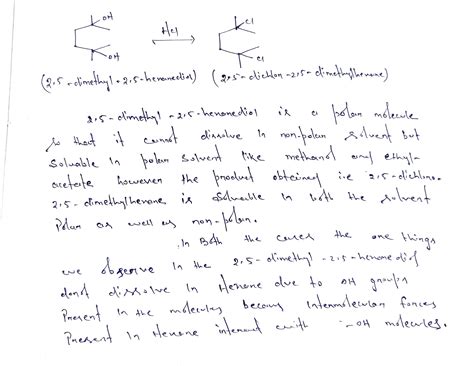 OH HCl Cl
OH Cl
(2,5-dimethyl-2,5-hexanediol) (2,5-dichloro-2,5-dimethylhexane)
2,5-dimethyl-2,5-hexanediol is a polar molecule
so that it cannot dissolve in non-polar solvent but
soluable in polar solvent like methanol and ethyl-
acetate however the product obtained i.e 2,5-dichloro-
2,5-dimethylhexane is soluable in both the solvent
Polar as well as non-polar.
In Both the cases the one things
we observe in the 2,5-dimethyl-2,5-hexanediol
donot dissolve in Hexane due to OH groups
Present in the molecules because Intermolecular forces
Present in Hexane interact with -OH molecules.